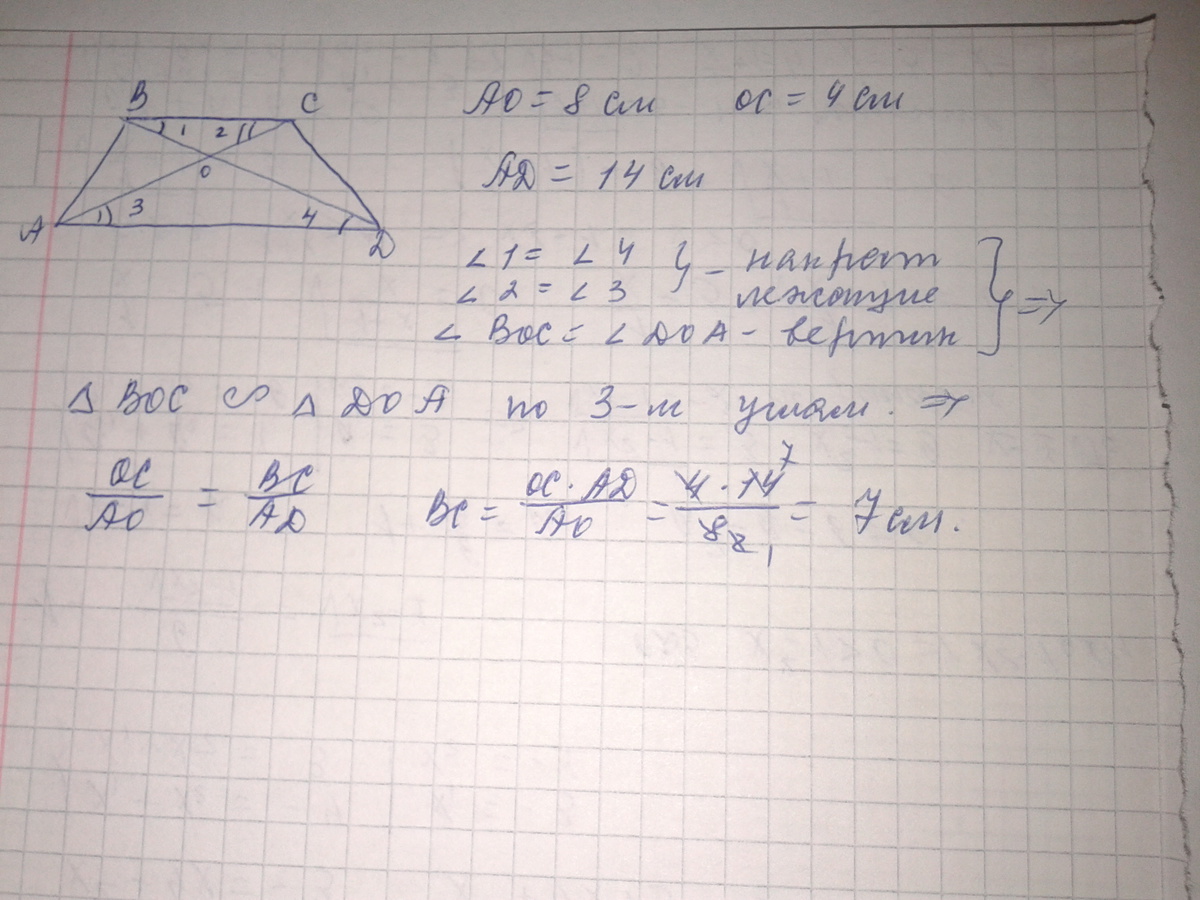 B C
1 2
O
3 4
A D
AO = 8 см OC = 4 см
AD = 14 см
∠ 1 = ∠ 4 } - накрест
∠ 2 = ∠ 3 лежащие } =>
∠ BOC = ∠ DOA - вертик
Δ BOC ∽ Δ DOA по 3-м углам. =>
OC/AO = BC/AD BC = OC · AD/AO = 4 · 14 7/8 2 1 = 7 см.